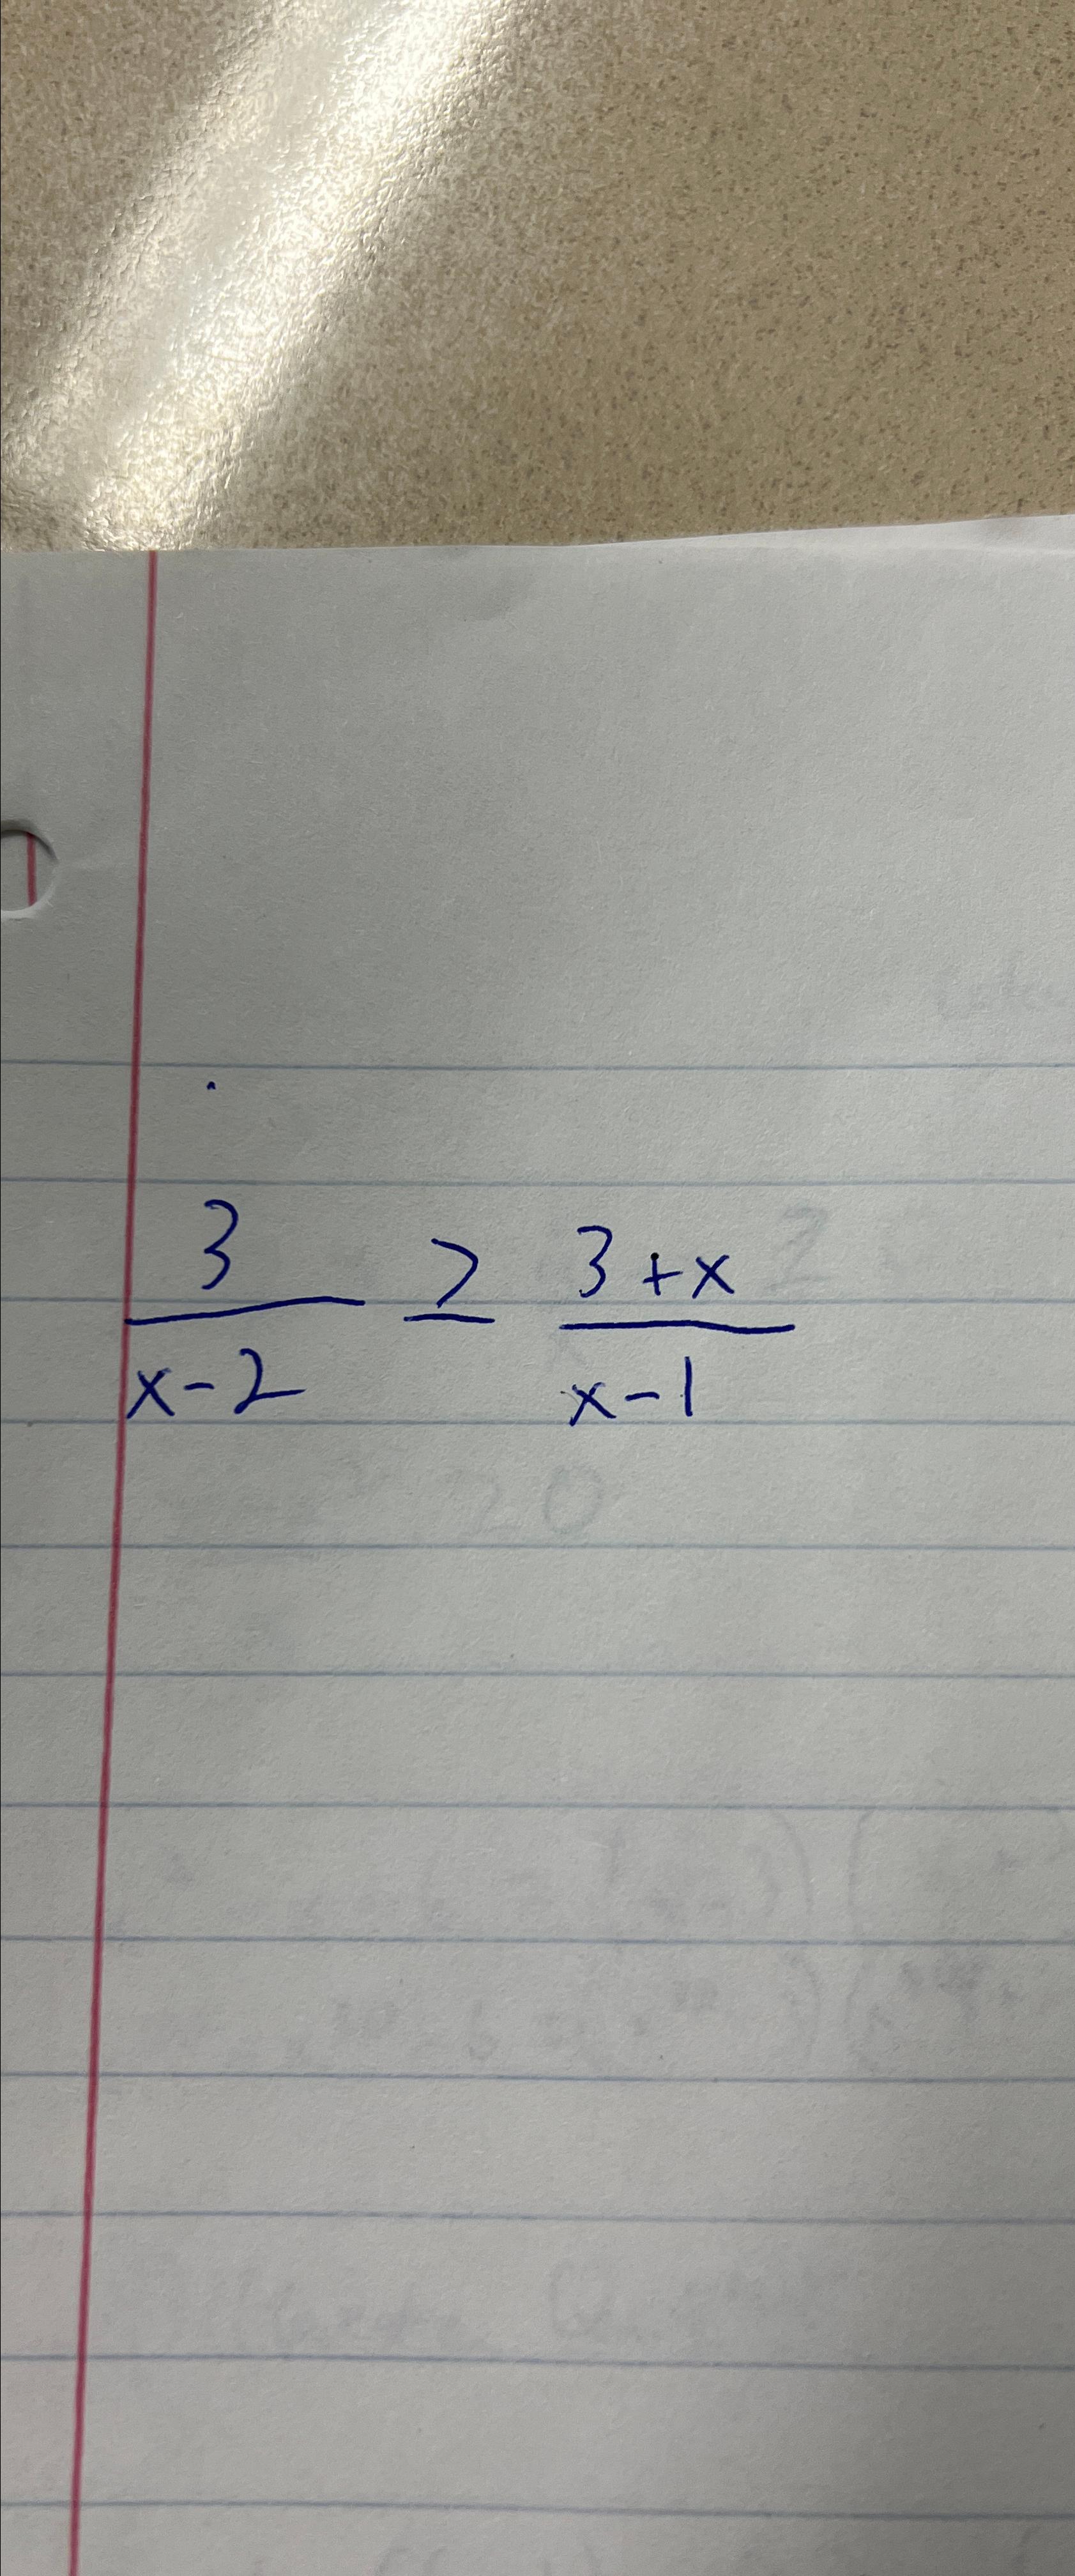 3/(x-2) ≥ (3+x)/(x-1)